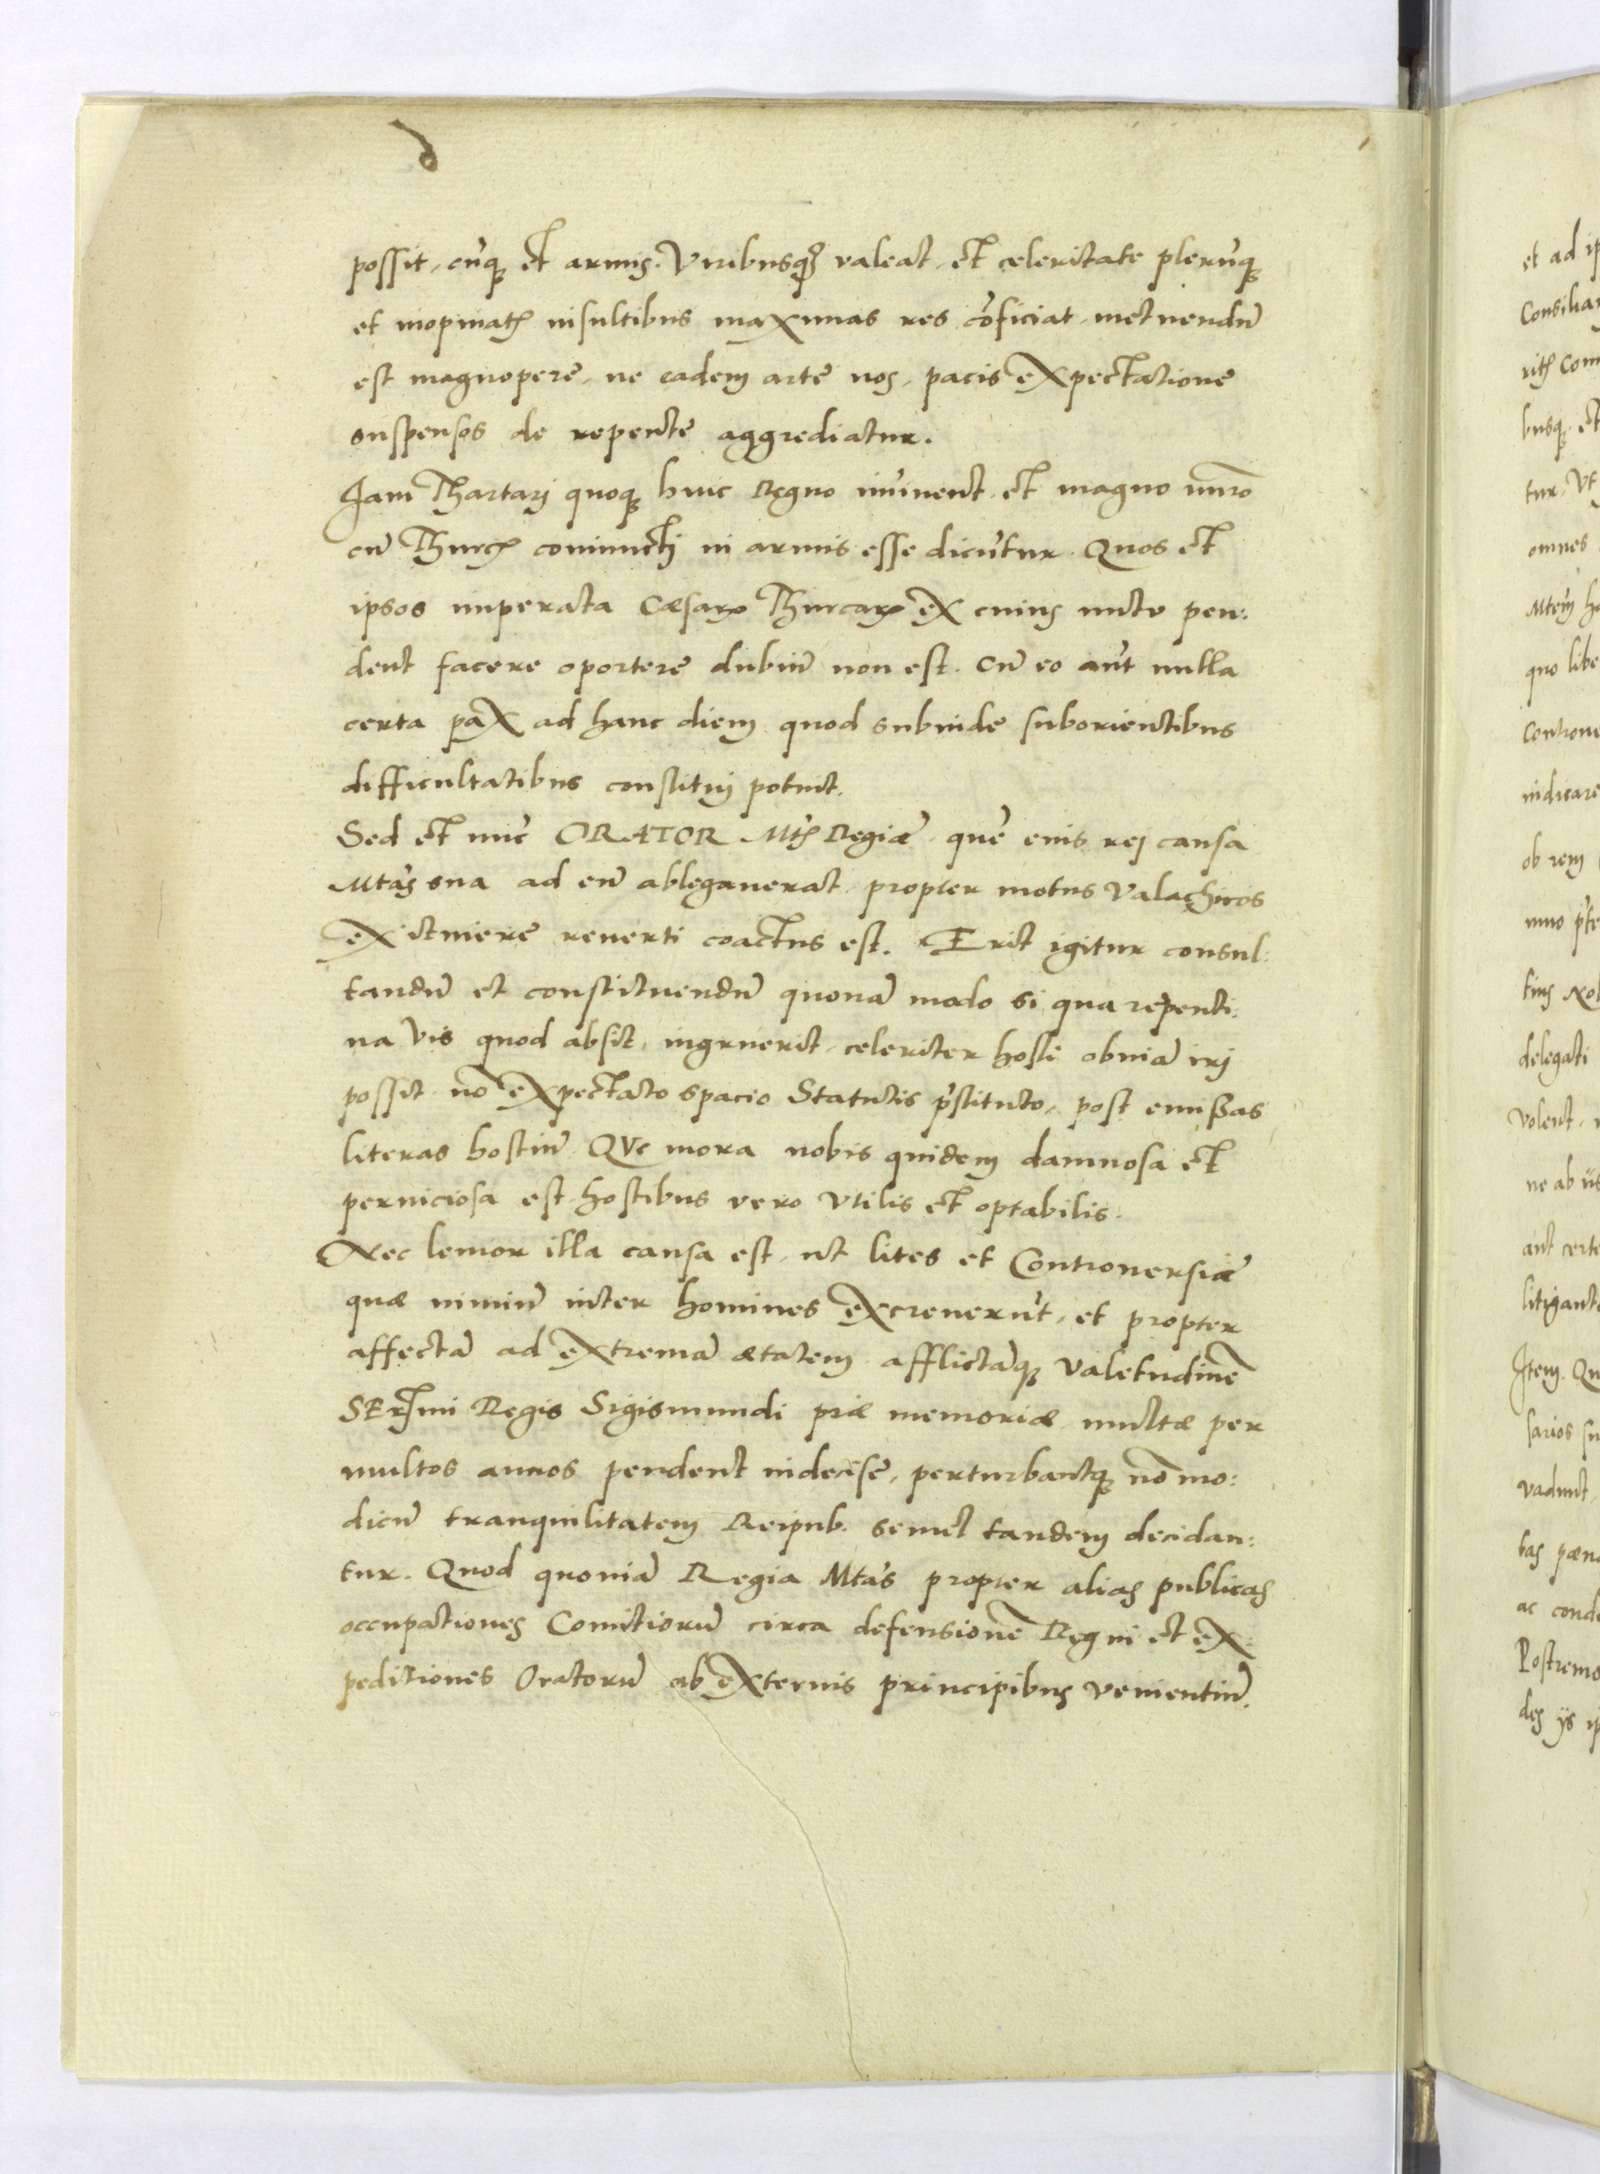 possit, cūq; et armis. Viribusq; valeat, et celeritate plerūq;
et inopinatis insultibus maximas res cōficiat, metuendū
est magnopere, ne eadem arte nos, pacis expectatione
suspensos de repente aggrediatur.
Jam Thartarj quoq; huic Regno im̄inent, et magno nūro
cū Thurcis coniunctj in armis esse dicūtur. Quos et
ipsos imperata Cæsaris Thurcarꝝ ex cuius nutu pen:
dent facere oportere dubiū non est. Cū eo aūt nulla
certa pax ad hanc diem quod subinde suborientibus
difficultatibus constitui potuit.
Sed et nūc ORATOR Mtis Regiæ, quē eius rej causa
Mtas sua ad eū ablegauerat, propter motus Valachicos
ex itinere reuerti coactus est. Erit igitur consul:
tandū et constituendū quonā modo si qua repenti:
na vis quod absit, ingruerit, celeriter hosti obuiā irj
possit nō expectato spacio Statutis p̄stituto, post emißas
literas hostiū Que mora nobis quidem damnosa et
perniciosa est hostibus vero vtilis et optabilis.
Nec leuior illa causa est, ut lites et Controuersiæ
quæ nimiū inter homines excreuerūt, et propter
affectā ad extremā ætatem afflictāq; valetudinē
SERmi Regis Sigismundi piæ memoriæ multæ per
multos annos pendent indecise, perturbantq; nō mo:
dicū tranquilitatem Reipub. semel tandem decidan:
tur. Quod quoniā Regia Mtas propter alias publicas
occupationes Comitiorū circa defensionē Regni et ex:
peditiones Oratorū ab externis principibus venientiū.
et ad ip
Consiliar
omnes
quo libe
Controue
indicare
ob rem
delegati
volent,
ne ab iis
aut certe
litigant
Item. Qu
vadunt,
ac conde
Postremo